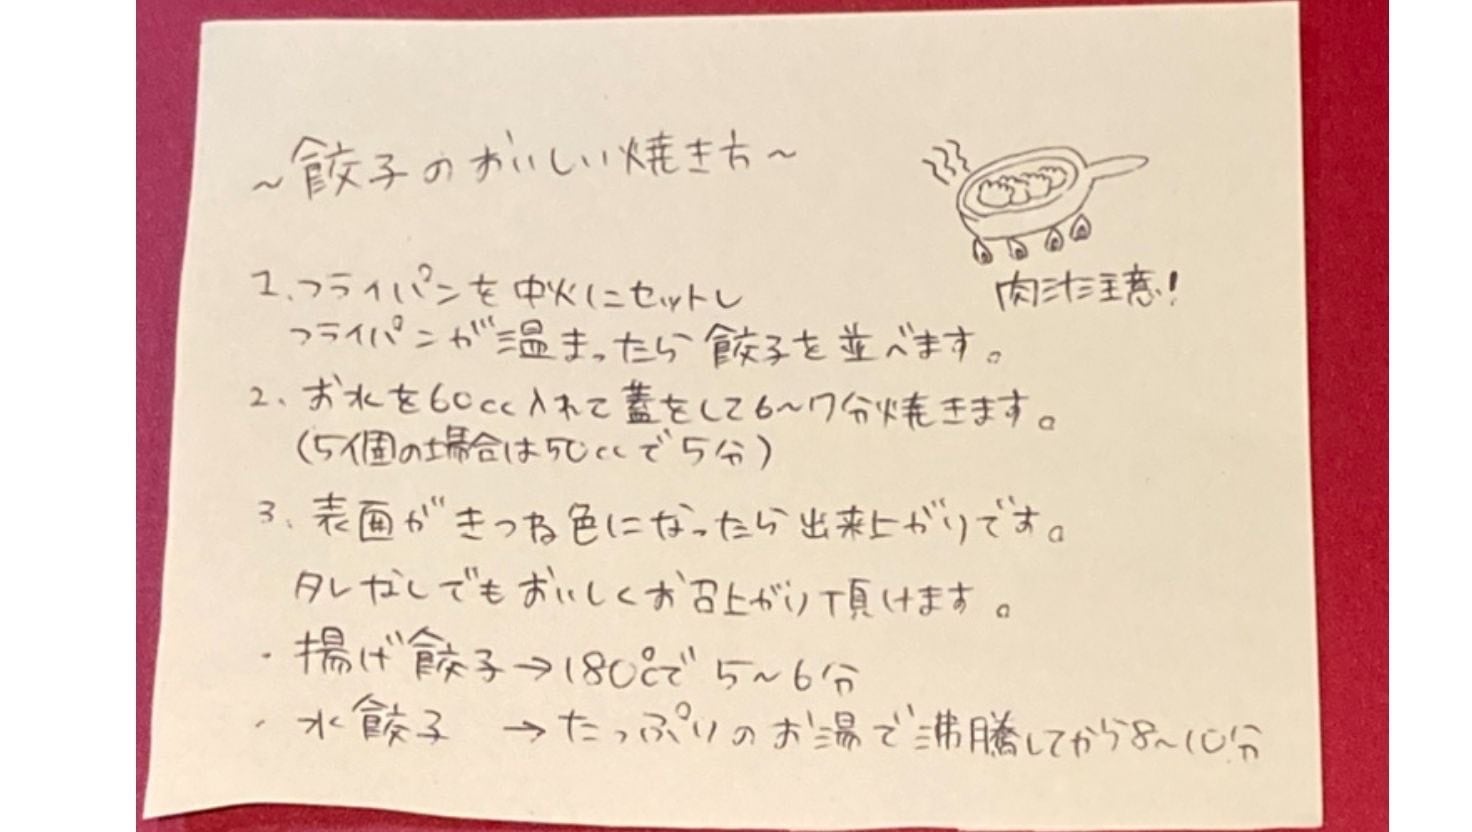 ~餃子のおいしい焼き方~
肉汁注意!
1.フライパンを中火にセットし
フライパンが温まったら餃子を並べます。
2.お水を60cc入れて蓋をして6~7分焼きます。
(5個の場合は50ccで5分)
3.表面がきつね色になったら出来上がりです。
タレなしでもおいしくお召上がり頂けます。
・揚げ餃子→180℃で5~6分
・水餃子 →たっぷりのお湯で沸騰してから8~10分